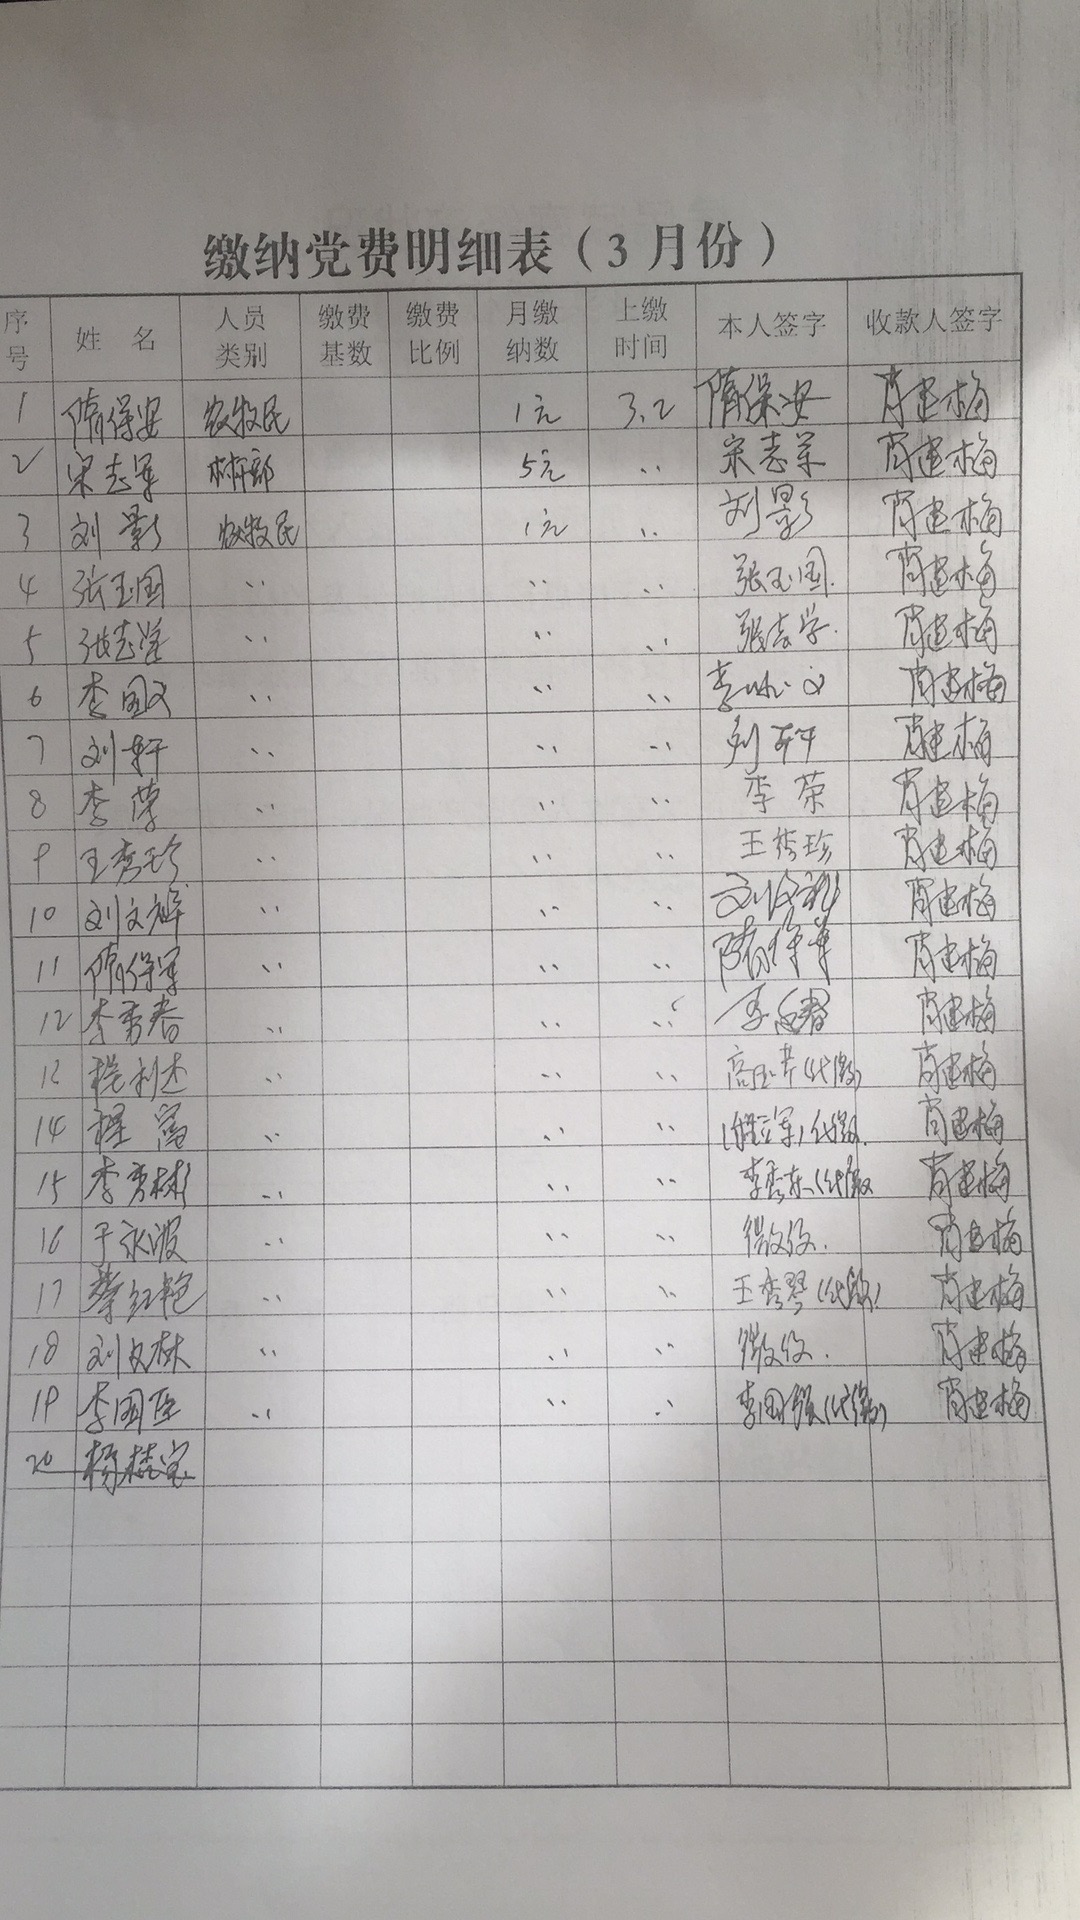 缴纳党费明细表（3月份）
序号 姓名 人员类别 缴费基数 缴费比例 月缴纳数 上缴时间 本人签字 收款人签字
1 隋保安 农牧民 1元 3.2 隋保安 肖建梅
2 宋志军 村干部 5元 〃 宋志军 肖建梅
3 刘影 农牧民 1元 〃 刘影 肖建梅
4 张玉国 〃 〃 〃 张玉国. 肖建梅
5 张志学 〃 〃 〃 张志学. 肖建梅
6 李国文 〃 〃 〃 李 文 肖建梅
7 刘轩 〃 〃 〃 刘轩 肖建梅
8 李荣 〃 〃 〃 李荣 肖建梅
9 王秀珍 〃 〃 〃 王秀珍 肖建梅
10 刘文辉 〃 〃 〃 刘文 肖建梅
11 隋保军 〃 〃 〃 隋保军 肖建梅
12 李秀春 〃 〃 〃 李 春 肖建梅
13 程利杰 〃 〃 〃 高玉芹(代缴) 肖建梅
14 程富 〃 〃 〃 (程立军)代缴. 肖建梅
15 李秀彬 〃 〃 〃 李秀东(代缴 肖建梅
16 于永波 〃 〃 〃 微信. 肖建梅
17 红艳 〃 〃 〃 王秀琴(代缴) 肖建梅
18 刘文林 〃 〃 〃 微信. 肖建梅
19 李国臣 〃 〃 〃 李国 (代缴) 肖建梅
20 杨桂宝